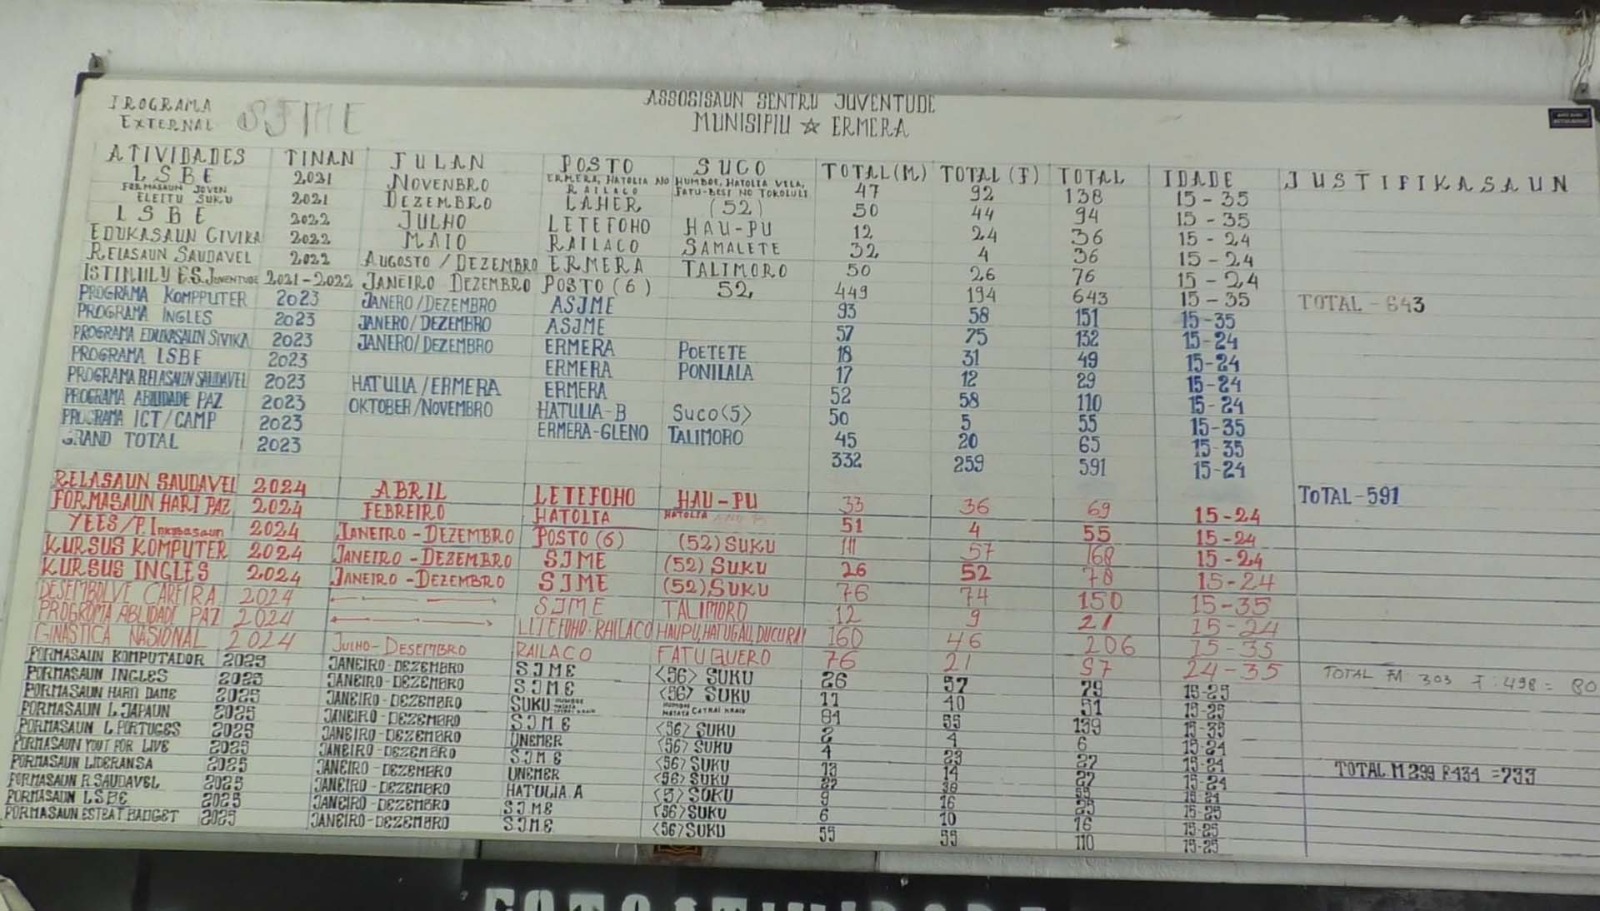 PROGRAMA
EXTERNAL SJME
ASSOSISAUN SENTRU JUVENTUDE
MUNISIPIU ☆ ERMERA
ATIVIDADES TINAN FULAN POSTO SUCO TOTAL(M) TOTAL (F) TOTAL IDADE JUSTIFIKASAUN
LSBE 2021 NOVENBRO ERMERA, HATOLIA NO RAILACO HUMBOE, HATOLIA VILA, FATU-BESI NO TOKOLULI 47 92 138 15-35
FORMASAUN JOVEN ELEITU SUKU 2021 DEZEMBRO LAHER (52) 50 44 94 15-35
LSBE 2022 JULHO LETEFOHO HAU-PU 12 24 36 15-24
EDUKASAUN CIVIKA 2022 MAIO RAILACO SAMALETE 32 4 36 15-24
RELASAUN SAUDAVEL 2022 AUGOSTO / DEZEMBRO ERMERA TALIMORO 50 26 76 15-24
ISTIMULY E.S. JUVENTUDE 2021-2022 JANEIRO DEZEMBRO POSTO (6) 52, 449 194 643 15-35 TOTAL - 643
PROGRAMA KOMPPUTER 2023 JANERO/DEZEMBRO ASJME 93 58 151 15-35
PROGRAMA INGLES 2023 JANERO/DEZEMBRO ASJME 57 75 132 15-24
PROGRAMA EDUKASAUN SIVIKA 2023 JANERO/DEZEMBRO ERMERA POETETE 18 31 49 15-24
PROGRAMA LSBE 2023 ERMERA PONILALA 17 12 29 15-24
PROGRAMA RELASAUN SAUDAVEL 2023 HATULIA/ERMERA ERMERA 52 58 110 15-24
PROGRAMA ABILIDADE PAZ 2023 OKTOBER/NOVEMBRO HATULIA-B SUCO<5> 50 5 55 15-35
PROGRAMA ICT/CAMP 2023 ERMERA-GLENO TALIMORO 45 20 65 15-35
GRAND TOTAL 2023 332 259 591 15-24
TOTAL-591
RELASAUN SAUDAVEL 2024 ABRIL LETEFOHO HAU-PU 33 36 69 15-24
FORMASAUN HARI PAZ 2024 FEBREIRO HATOLIA HATOLIA 51 4 55 15-24
YEES/P. 2024 JANEIRO-DEZEMBRO POSTO (6) (52) SUKU 111 57 168 15-24
KURSUS KOMPUTER 2024 JANEIRO-DEZEMBRO SJME (52) SUKU 26 52 78 15-24
KURSUS INGLES 2024 JANEIRO-DEZEMBRO SJME (52) SUKU 76 74 150 15-35
DESEMBOLVE CAREIRA 2024 SJME TALIMORO 12 9 21 15-24
PROGROMA ABLIDADE PAZ 2024 LETEFOHO-RAILACO HAUPU, HATUGAU, DUCURAI 160 46 206 15-35
GINASTICA NASIONAL 2024 JULHO-DESEMBRO RAILACO FATUQUERO 76 21 97 24-35
TOTAL M 303 F: 498 = 80
FORMASAUN KOMPUTADOR 2025 JANEIRO-DEZEMBRO SJME <56> SUKU 26 57 79 15-25
FORMASAUN INGLES 2025 JANEIRO-DEZEMBRO SJME <56> SUKU 11 40 51 15-25
FORMASAUN HARII DAME 2025 JANEIRO-DEZEMBRO SUKU 84 55 139 15-35
FORMASAUN L. JAPAUN 2025 JANEIRO-DEZEMBRO SJME <56> SUKU 2 4 6 15-24
FORMASAUN L. PORTUGES 2025 JANEIRO-DEZEMBRO UNEMER <56> SUKU 4 23 27 15-24
FORMASAUN YOUT FOR LIVE 2025 JANEIRO-DEZEMBRO SJME <56> SUKU 13 14 27 15-24
FORMASAUN LIDERANSA 2025 JANEIRO-DEZEMBRO UNEMER <56> SUKU 15-24
TOTAL M 299 F 434 = 733
FORMASAUN R SAUDAVEL 2025 JANEIRO-DEZEMBRO HATULIA A <5> SUKU 9 16 25 15-25
FORMASAUN LSBE 2025 JANEIRO-DEZEMBRO SJME <56> SUKU 6 10 16 15-25
FORMASAUN ESTRAT BADGET 2025 JANEIRO-DEZEMBRO SJME <56> SUKU 55 55 110 15-25